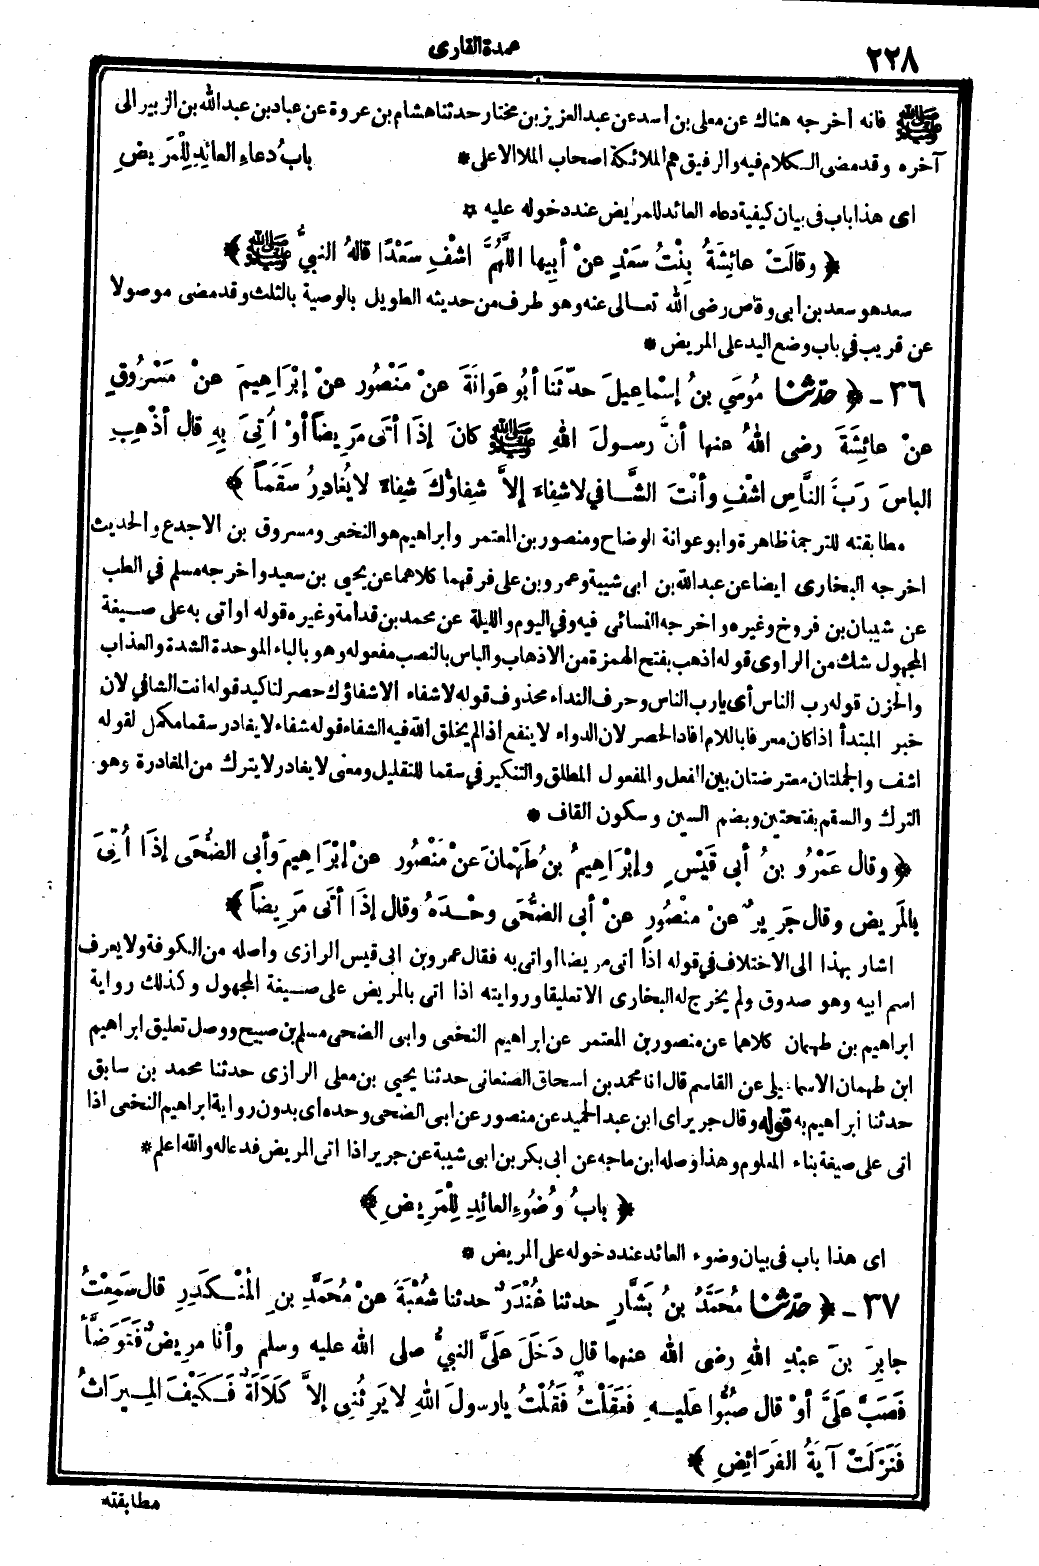 ٢٢٨
عمدة القارى
ﷺ فانه أخرجه هناك عن معلى بن أسد عن عبد العزيز بن مختار حدثنا هشام بن عروة عن عباد بن عبد الله بن الزبير الى
آخره وقد مضى الكلام فيه والرفيق هم الملائكة اصحاب الملا الاعلى * بابُ دعاءِ العائِدِ لِلْمَرِيضِ
اى هذا باب فى بيان كيفية دعاء العائد للمريض عند دخوله عليه *
﴿ وقالَتْ عائِشَةُ بِنْتُ سَعْدٍ عنْ أبِيها اللَّهُمَّ اشْفِ سَعْدًا قالهُ النبىُّ ﷺ ﴾
سعد هو سعد بن ابى وقاص رضى الله تعالى عنه وهو طرف من حديثه الطويل بالوصية بالثلث وقد مضى موصولا
عن قريب في باب وضع اليد على المريض *
٣٦ - ﴿ حدّثنا مُوسَي بنُ إسْماعِيلَ حدّثنا أبُو عَوانَةَ عنْ مَنْصُورٍ عنْ إبْرَاهِيمَ عنْ مَسْرُوقٍ
عنْ عائِشَةَ رضى اللهُ عنها أنَّ رسولَ اللهِ ﷺ كانَ إذَا أتَى مَرِيضاً أوْ أُتِىَ بِهِ قال أذْهِبِ
الباسَ رَبَّ النَّاسِ اشْفِ وأنْتَ الشَّافي لاشِفاءَ إلاَّ شِفاؤُكَ شِفاءً لا يُغادِرُ سَقَماً ﴾
مطابقته للترجمة ظاهرة وابو عوانة الوضاح ومنصور بن المعتمر وابراهيم هو النخعى ومسروق بن الاجدع والحديث
اخرجه البخارى ايضا عن عبد الله بن ابى شيبة وعمرو بن على فرقهما كلاهما عن يحيى بن سعيد واخرجه مسلم في الطب
عن شيبان بن فروخ وغيره واخرجه النسائى فيه وفي اليوم والليلة عن محمد بن قدامة وغيره قوله او اتى به على صيغة
المجهول شك من الراوى قوله اذهب بفتح الهمزة من الاذهاب والباس بالنصب مفعوله وهو بالباء الموحدة الشدة والعذاب
والحزن قوله رب الناس أى يارب الناس وحرف النداء محذوف قوله لاشفاء الاشفاؤك حصر لتاكيد قوله انت الشافي لان
خبر المبتدأ اذا كان معرفا باللام افاد الحصر لان الدواء لا ينفع اذا لم يخلق الله فيه الشفاء قوله شفاء لا يغادر سقما مكمل لقوله
اشف والجملتان معترضتان بين الفعل والمفعول المطلق والتنكير في سقما للتقليل ومعنى لا يغادر لا يترك من المغادرة وهو
الترك والسقم بفتحتين وبضم السين وسكون القاف *
﴿ وقال عَمْرُو بنُ أبى قَيْسٍ وإبْرَاهِيمُ بنُ طَهْمانَ عنْ مَنْصُورٍ عنْ إبْرَاهِيمَ وأبى الضُّحَى إذَا أُتِىَ
بالمَرِيضِ وقال جَرِيرٌ عنْ منْصُورٍ عنْ أبى الضُّحَى وحْدَهُ وقال إذَا أتَى مَرِيضاً ﴾
اشار بهذا الى الاختلاف في قوله اذا اتى مريضا او اتى به فقال عمرو بن ابى قيس الرازى واصله من الكوفة ولا يعرف
اسم ابيه وهو صدوق ولم يخرج له البخارى الا تعليقا وروايته اذا اتى بالمريض على صيغة المجهول وكذلك رواية
ابراهيم بن طهمان كلاهما عن منصور بن المعتمر عن ابراهيم النخعى وابى الضحى مسلم بن صبيح ووصل تعليق ابراهيم
ابن طهمان الاسماعيلى عن القاسم قال انا محمد بن اسحاق الصنعانى حدثنا يحيى بن معلى الرازى حدثنا محمد بن سابق
حدثنا ابراهيم به قوله وقال جرير اى ابن عبد الحميد عن منصور عن ابى الضحى وحده اى بدون رواية ابراهيم النخعى اذا
اتى على صيغة بناء المعلوم وهذا وصله ابن ماجه عن ابى بكر بن ابى شيبة عن جرير اذا اتى المريض فدعا له والله اعلم *
﴿ بابُ وُضُوءِ العائِدِ لِلْمَرِيضِ ﴾
اى هذا باب فى بيان وضوء العائد عند دخوله على المريض *
٣٧ - ﴿ حدّثنا مُحَمَّدُ بنُ بَشَّارٍ حدثنا غُنْدَرٌ حدثنا شُعْبَةُ عنْ مُحَمَّدِ بنِ المُنْكَدِرِ قال سَمِعْتُ
جابِرَ بنَ عبْدِ اللهِ رضى الله عنهما قال دَخَلَ عَلَىَّ النبىُّ صلى الله عليه وسلم وأنا مرِيضٌ فَتَوَضَّأَ
فَصَبَّ عَلَىَّ أوْ قال صُبُّوا عَليهِ فَعَقَلْتُ فَقُلْتُ يا رسولَ اللهِ لا يَرِثُنِى إلاَّ كَلاَلَةٌ فَكَيْفَ المِيرَاثُ
فَنَزَلَتْ آيَةُ الفَرَائِضِ ﴾
مطابقته